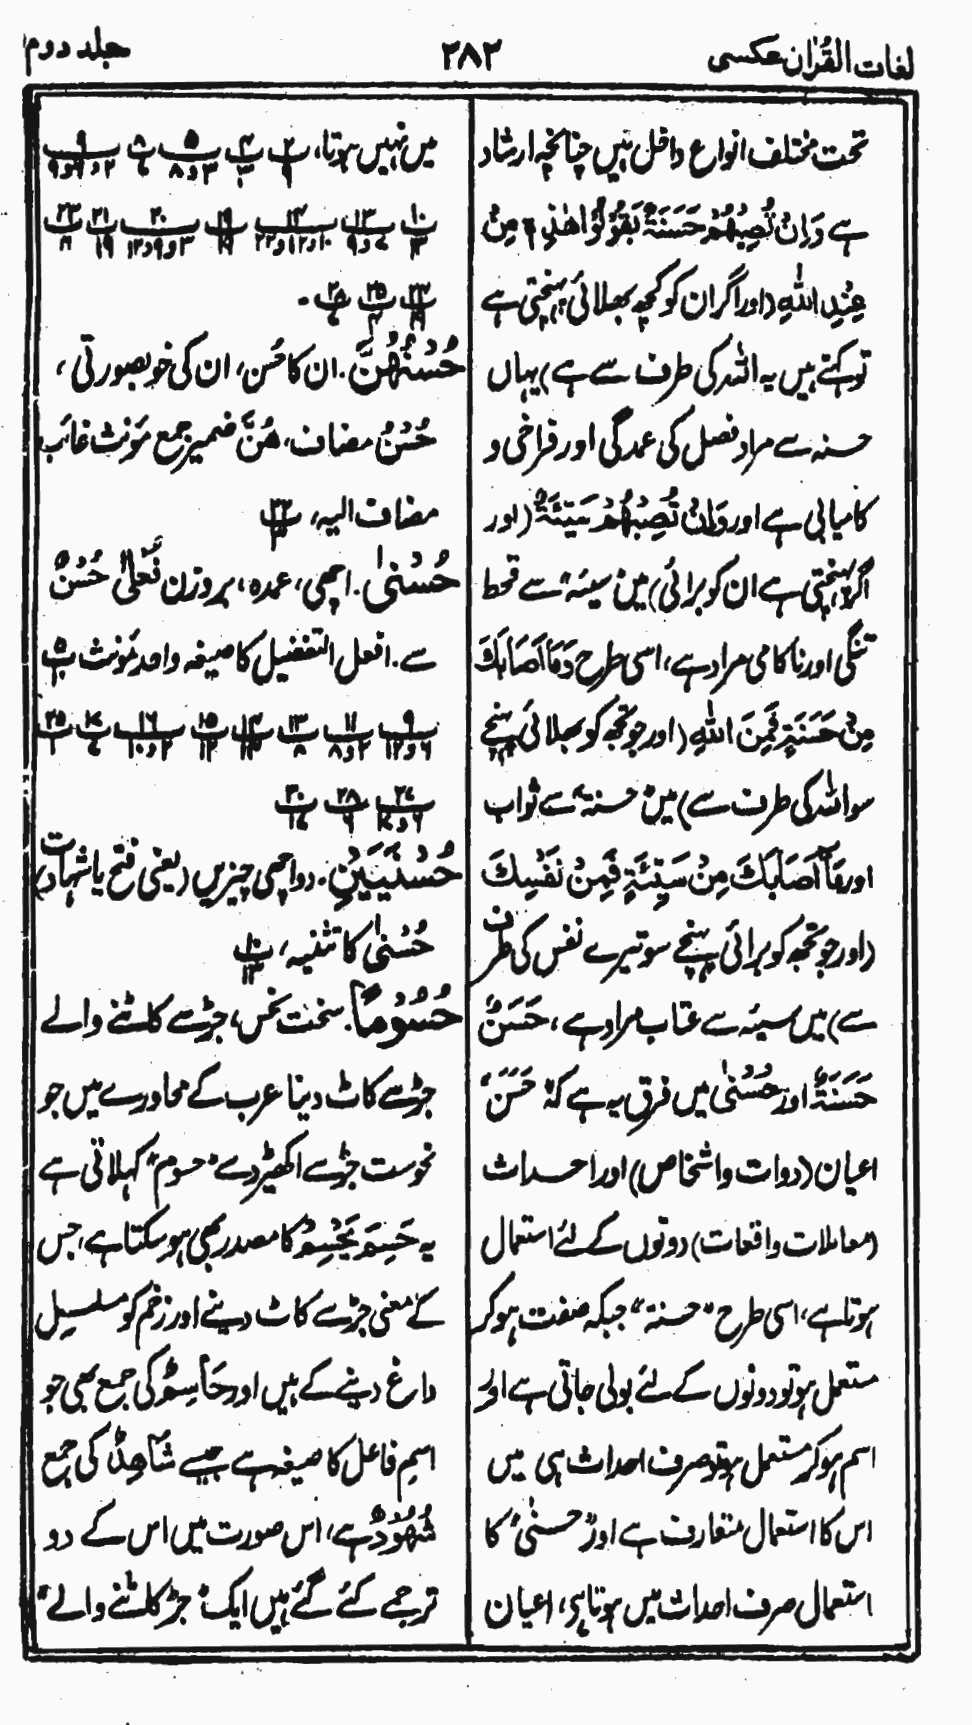 لغات القرآن عکسی
۲۸۲
جلد دوم
تحت مختلف انواع داخل ہیں چنانچہ ارشاد
ہے وَاِنْ تُصِبْهُمْ حَسَنَةٌ يَّقُوْلُوْا هٰذِهٖ مِنْ
عِنْدِ اللّٰهِ (اور اگر ان کو کچھ بھلائی پہنچتی ہے
تو کہتے ہیں یہ اللہ کی طرف سے ہے) یہاں
حسنہ سے مراد فصل کی عمدگی اور فراخی و
کامیابی ہے اور وَاِنْ تُصِبْهُمْ سَيِّئَةٌ (اور
اگر پہنچتی ہے ان کو برائی) میں سیئہ سے قحط
تنگی اور ناکامی مراد ہے، اسی طرح مَا اَصَابَكَ
مِنْ حَسَنَةٍ فَمِنَ اللّٰهِ (اور جو تجھ کو بھلائی پہنچے
سو اللہ کی طرف سے) میں "حسنۃ" سے ثواب
اور مَآ اَصَابَكَ مِنْ سَيِّئَةٍ فَمِنْ نَّفْسِكَ
(اور جو تجھ کو برائی پہنچے سو تیرے نفس کی طرف
سے) میں سیئہ سے عتاب مراد ہے، حَسَنٌ
حَسَنَةٌ اور حُسْنٰی میں فرق یہ ہے کہ "حَسَن"
اعیان (ذوات واشخاص) اور احداث
(معاملات واقعات) دونوں کے لئے استعمال
ہوتا ہے، اسی طرح "حسنۃ" جبکہ صفت ہو کر
مستعمل ہو تو دونوں کے لئے بولی جاتی ہے اور
اسم ہو کر مستعمل ہو تو صرف احداث ہی میں
اس کا استعمال متعارف ہے اور "حسنٰی" کا
استعمال صرف احداث میں ہوتا ہے، اعیان
میں نہیں ہوتا،
حُسْنُهُنَّ. ان کا حُسن، ان کی خوبصورتی،
حُسْنُ مضاف، هُنَّ ضمیر جمع مؤنث غائب
مضاف الیہ، ۲۲
حُسْنٰی. اچھی، عمدہ، بروزن فُعْلٰی حُسْنٌ
سے. افعل التفضیل کا صیغہ واحد مؤنث
حُسْنَيَيْنِ. دو اچھی چیزیں (یعنی فتح یا شہادت)
حُسْنٰی کا تثنیہ، ۱۰ ۱۳
حُسُوْمًا. سخت نحس، جڑ سے کاٹنے والے
جڑ سے کاٹ دینا عرب کے محاورے میں جو
نحوست جڑ سے اکھیڑ دے "حسوم" کہلاتی ہے
یہ حَسَمَ يَحْسِمُ کا مصدر بھی ہو سکتا ہے، جس
کے معنی جڑ سے کاٹ دینے اور زخم کو مسلسل
داغ دینے کے ہیں اور حَاسِمٌ کی جمع بھی جو
اسم فاعل کا صیغہ ہے جیسے شَاهِدٌ کی جمع
شُهُوْدٌ ہے، اس صورت میں اس کے دو
ترجمے کئے گئے ہیں ایک "جڑ کاٹنے والے"